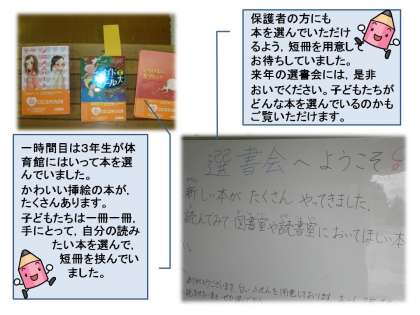 保護者の方にも
本を選んでいただけ
るよう，短冊を用意して
お待ちしていました。
来年の選書会には，是非
おいでください。子どもたちが
どんな本を選んでいるのかも
ご覧いただけます。
一時間目は３年生が体
育館にはいって本を選
んでいました。
かわいい挿絵の本が，
たくさんあります。
子どもたちは一冊一冊，
手にとって，自分の読み
たい本を選んで，
短冊を挟んでい
ました。
選書会へようこそ
新しい本が たくさん やってきました。
読んでみて 図書室や読書室に おいてほしい本